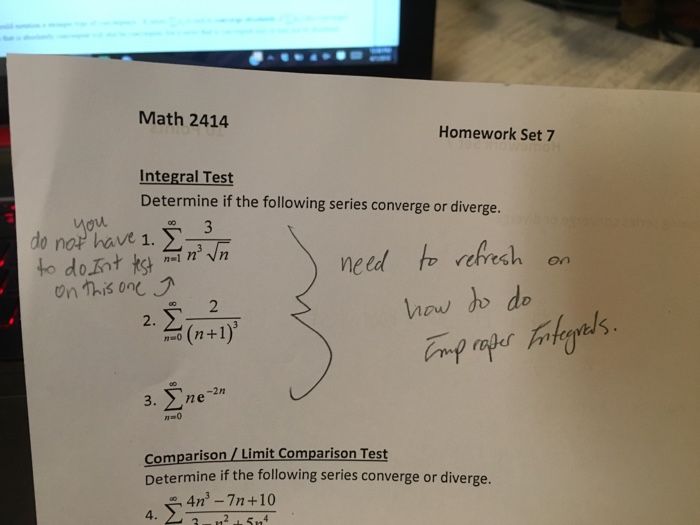 Math 2414
Homework Set 7
Integral Test
Determine if the following series converge or diverge.
you
do not have
to do Int test
on this one ↑
1. ∞ ∑ n=1 3 / n³ √n
2. ∞ ∑ n=0 2 / (n+1)³
3. ∞ ∑ n=0 ne⁻²ⁿ
need to refresh on
how to do
Improper Integrals.
Comparison / Limit Comparison Test
Determine if the following series converge or diverge.
4. ∞ ∑ 4n³ – 7n + 10